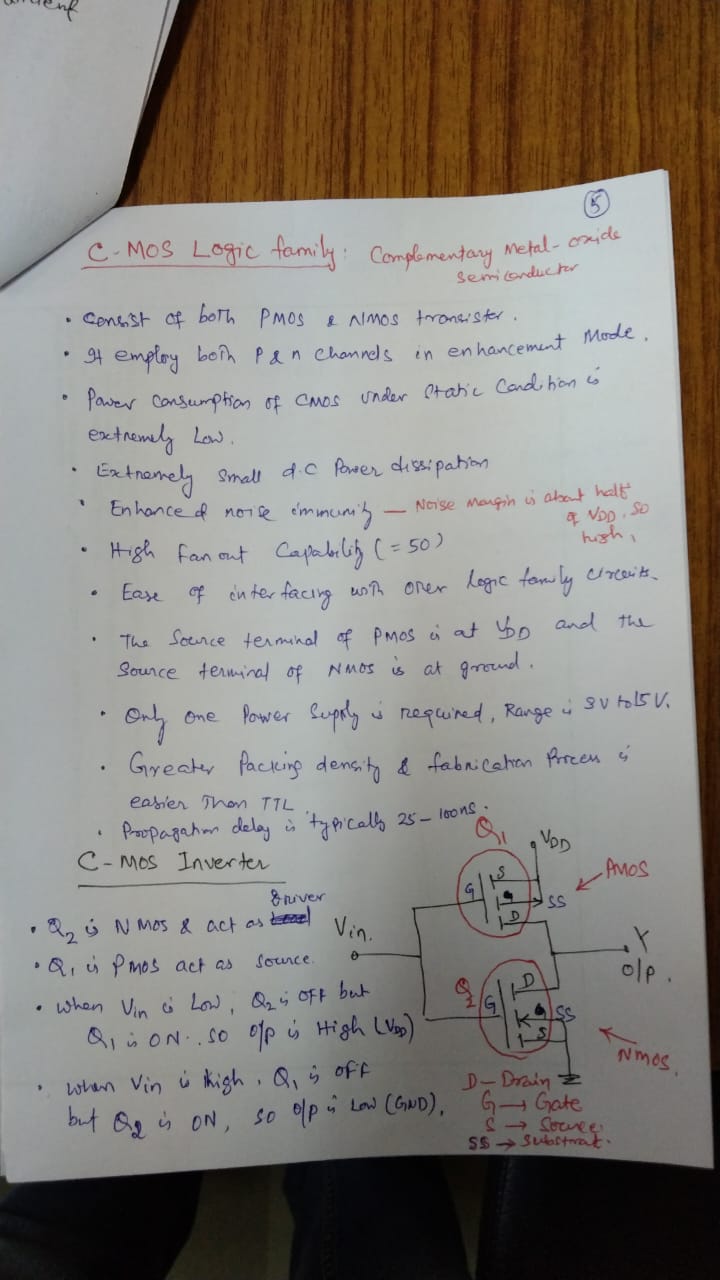 5
C-MOS Logic family: Complementary Metal-oxide
Semiconductor
• Consist of both PMOS & NMOS transister.
• It employ both P & n channels in enhancement Mode.
• Power Consumption of CMOS under Static Condition is
extremely Low.
• Extremely small d.c Power dissipation
• Enhanced noise immunity — Noise Margin is about half
of VDD, so
high,
• High fan out Capability (= 50)
• Ease of interfacing with other logic family circuits.
• The Source terminal of PMOS is at VDD and the
Source terminal of NMOS is at ground.
• Only one Power Supply is required, Range is 3V to 15V.
• Greater Packing density & fabrication Process is
easier than TTL
• Propagation delay is typically 25-100ns.
C-MOS Inverter
driver
• Q2 is NMOS & act as
• Q1 is PMOS act as source.
• when Vin is Low, Q2 is OFF but
Q1 is ON. so o/p is High (VDD)
• when Vin is High, Q1 is OFF
but Q2 is ON, so o/p is Low (GND).
Q1
VDD
PMOS
S
G
SS
D
Vin.
Y
o/p.
Q2
D
G
SS
S
NMOS.
D – Drain
G → Gate
S → Source
SS → Substrat.